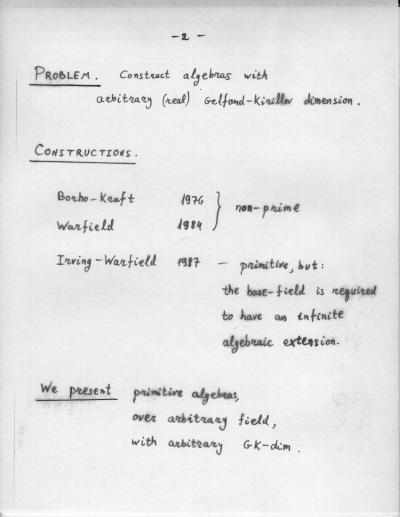 - 2 -
PROBLEM. Construct algebras with
arbitrary (real) Gelfand-Kirillov dimension.
CONSTRUCTIONS.
Borho-Kraft 1976 } non-prime
Warfield 1984
Irving-Warfield 1987 — primitive, but:
the base-field is required
to have an infinite
algebraic extension.
We present primitive algebras,
over arbitrary field,
with arbitrary GK-dim.